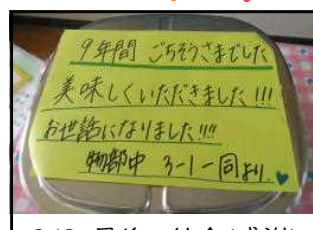 9年間 ごちそうさまでした
美味しくいただきました!!!
お世話になりました!!!!
物部中 3-1一同より。